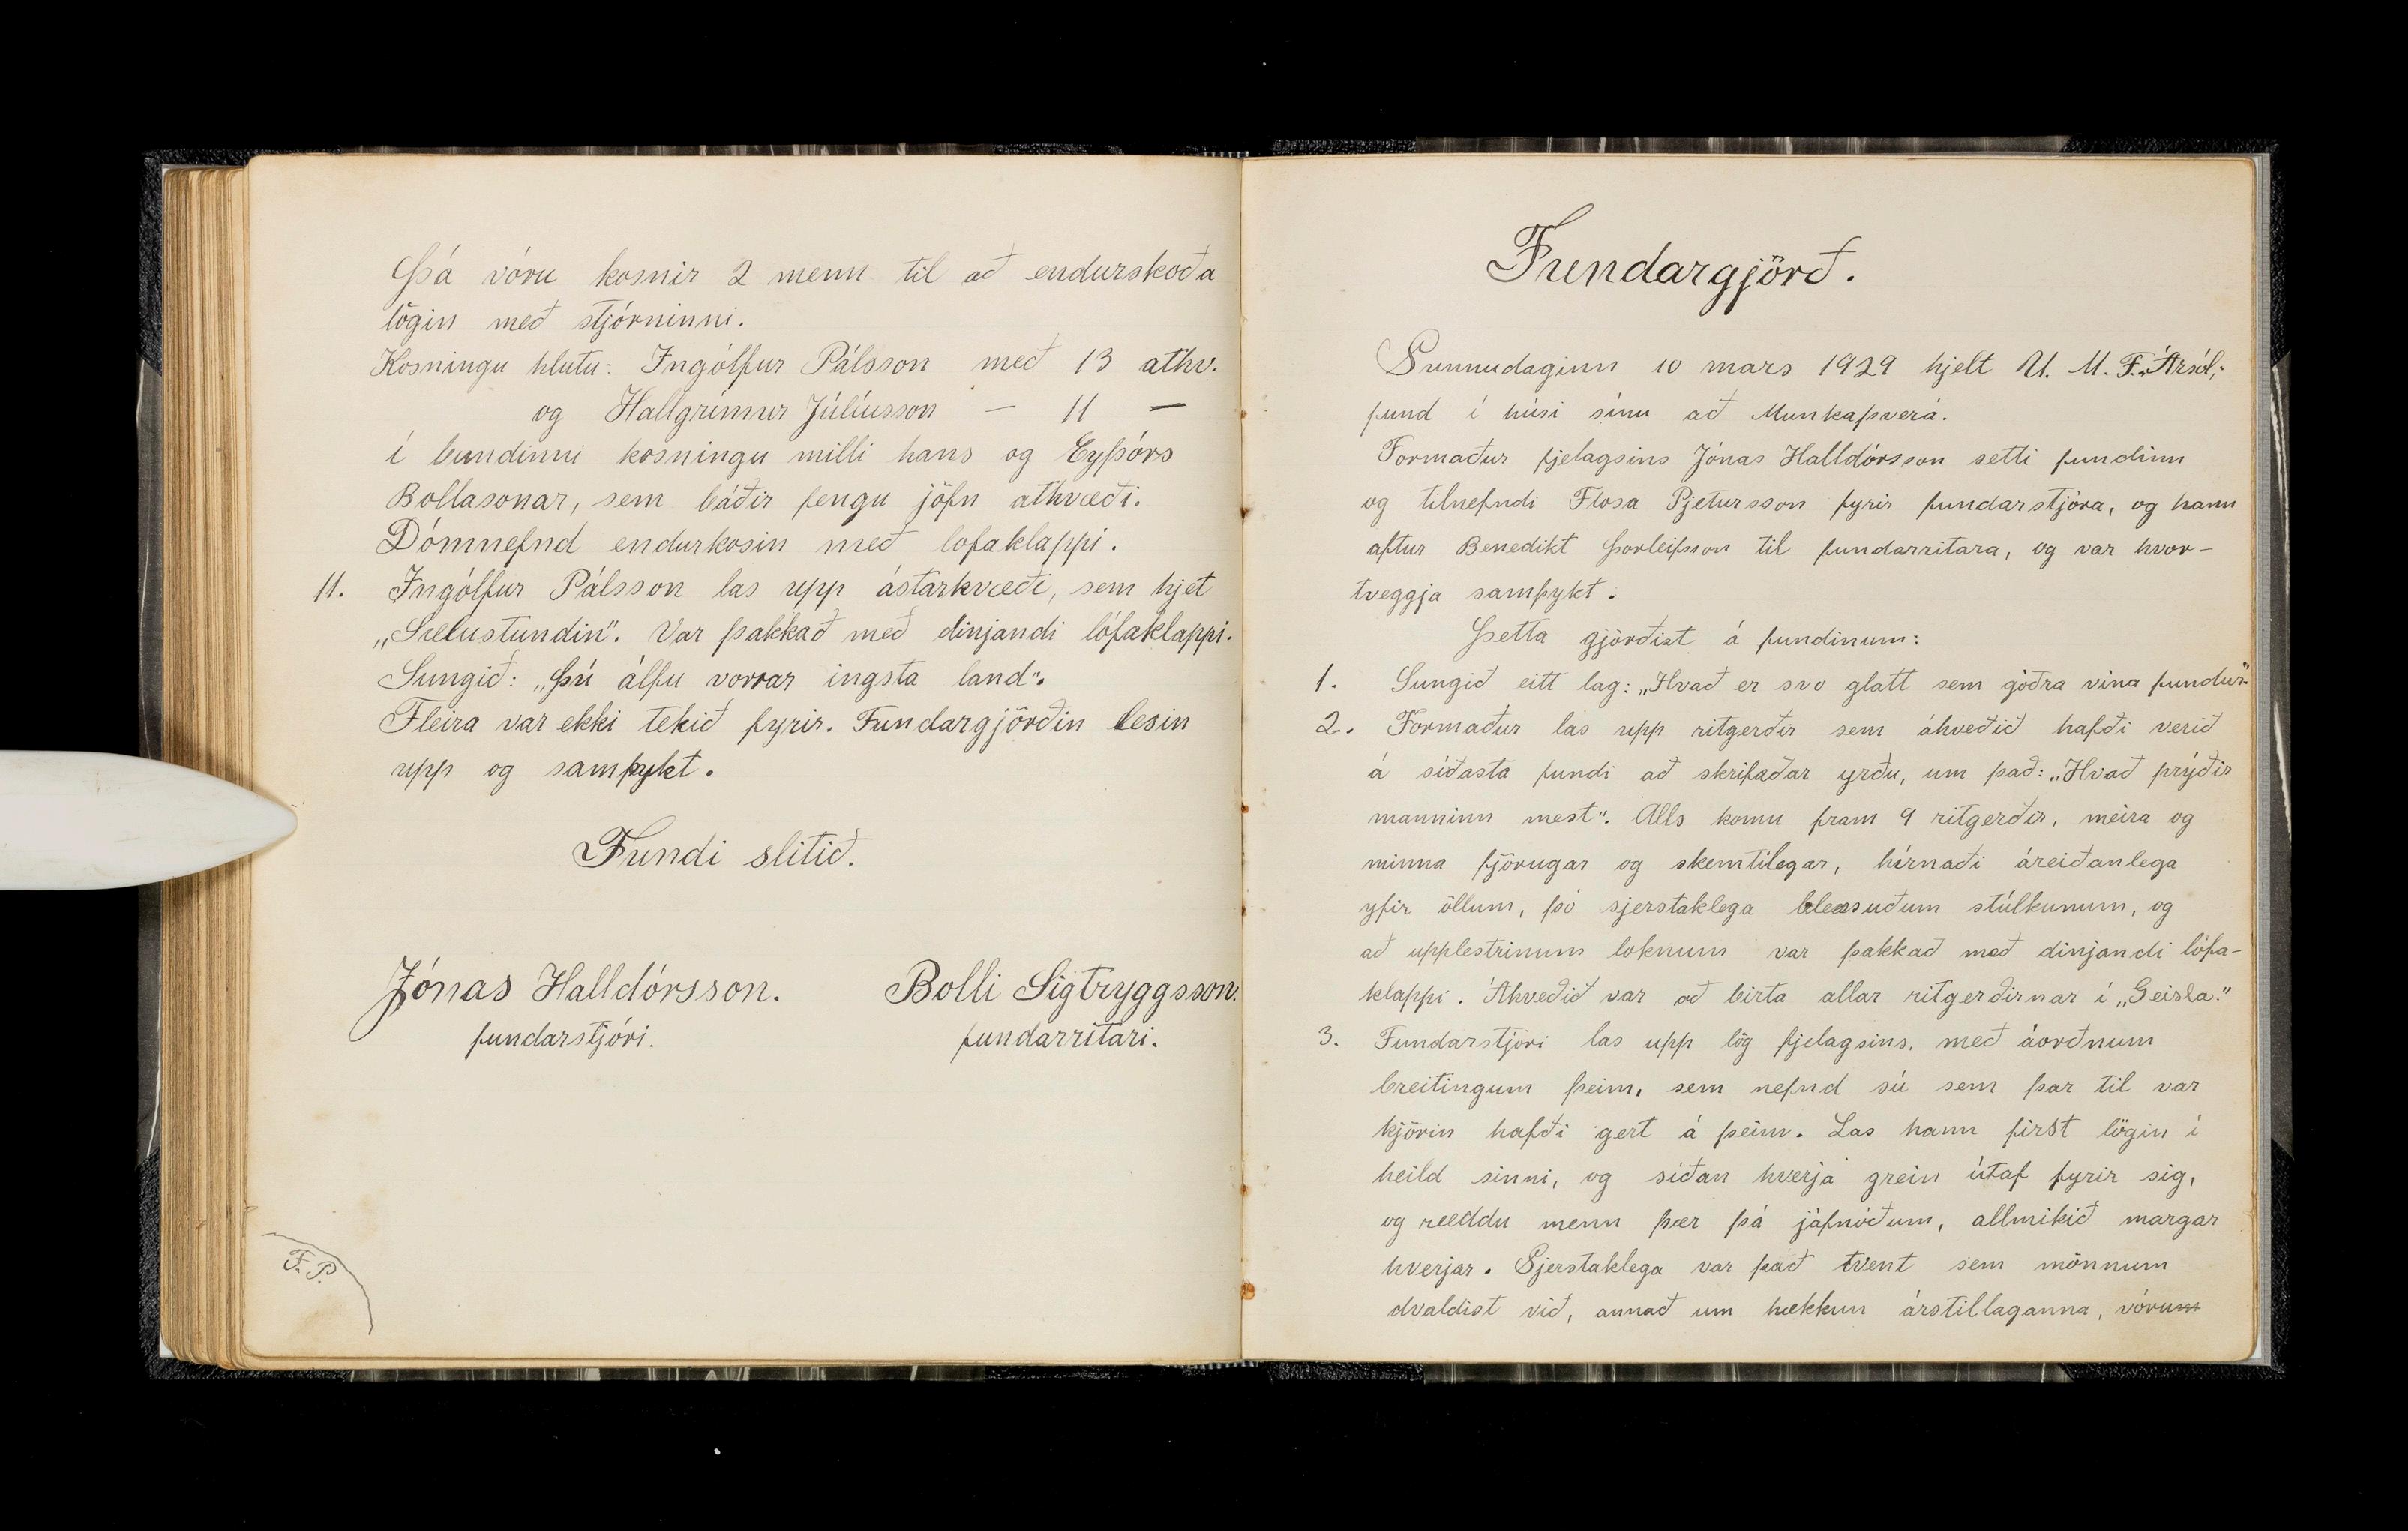 Þá vóru kosnir 2 menn til að endurskoða
lögin með stjórninni.
Kosningu hlutu: Ingólfur Pálsson með 13 athv.
og Hallgrímur Júlíusson — 11 —
í bundinni kosningu milli hans og Eyþórs
Bollasonar, sem báðir fengu jöfn athvæði.
Dómnefnd endurkosin með lofaklappi.
11. Ingólfur Pálsson las upp ástarkvæði, sem hjet
„Sælustundin". Var þakkað með dinjandi lófaklappi.
Sungið: „Þú álfu vorrar ingsta land".
Fleira var ekki tekið fyrir. Fundargjörðin lesin
upp og samþykt.
Fundi slitið.
Jónas Halldórsson. Bolli Sigtryggsson.
fundarstjóri. fundarritari.
F.P.
Fundargjörð.
Sunnudaginn 10 mars 1929 hjelt U. M. F. „Ársól"
fund í húsi sínu að Munkaþverá.
Formaður fjelagsins Jónas Halldórsson setti fundinn
og tilnefndi Flosa Pjetursson fyrir fundarstjóra, og hann
aftur Benedikt Þorleifsson til fundarritara, og var hvor-
tveggja samþykt.
Þetta gjörðist á fundinum:
1. Sungið eitt lag: „Hvað er svo glatt sem góðra vina fundur"
2. Formaður las upp ritgerðir sem ákveðið hafði verið
á síðasta fundi að skrifaðar yrðu, um það: „Hvað prýðir
manninn mest". Alls komu fram 9 ritgerðir, meira og
minna fjörugar og skemtilegar, hírnaði áreiðanlega
yfir öllum, þó sjerstaklega blessuðum stúlkunum, og
að upplestrinum loknum var þakkað með dinjandi lófa-
klappi. Ákveðið var að birta allar ritgerðirnar í „Geisla."
3. Fundarstjóri las upp lög fjelagsins, með áorðnum
breitingum þeim, sem nefnd sú sem þar til var
kjörin hafði gert á þeim. Las hann first lögin í
heild sinni, og síðan hverja grein útaf fyrir sig,
og ræddu menn þær þá jafnóðum, allmikið margar
hverjar. Sjerstaklega var það tvent sem mönnum
dvaldist við, annað um hækkun árstillaganna, vórum